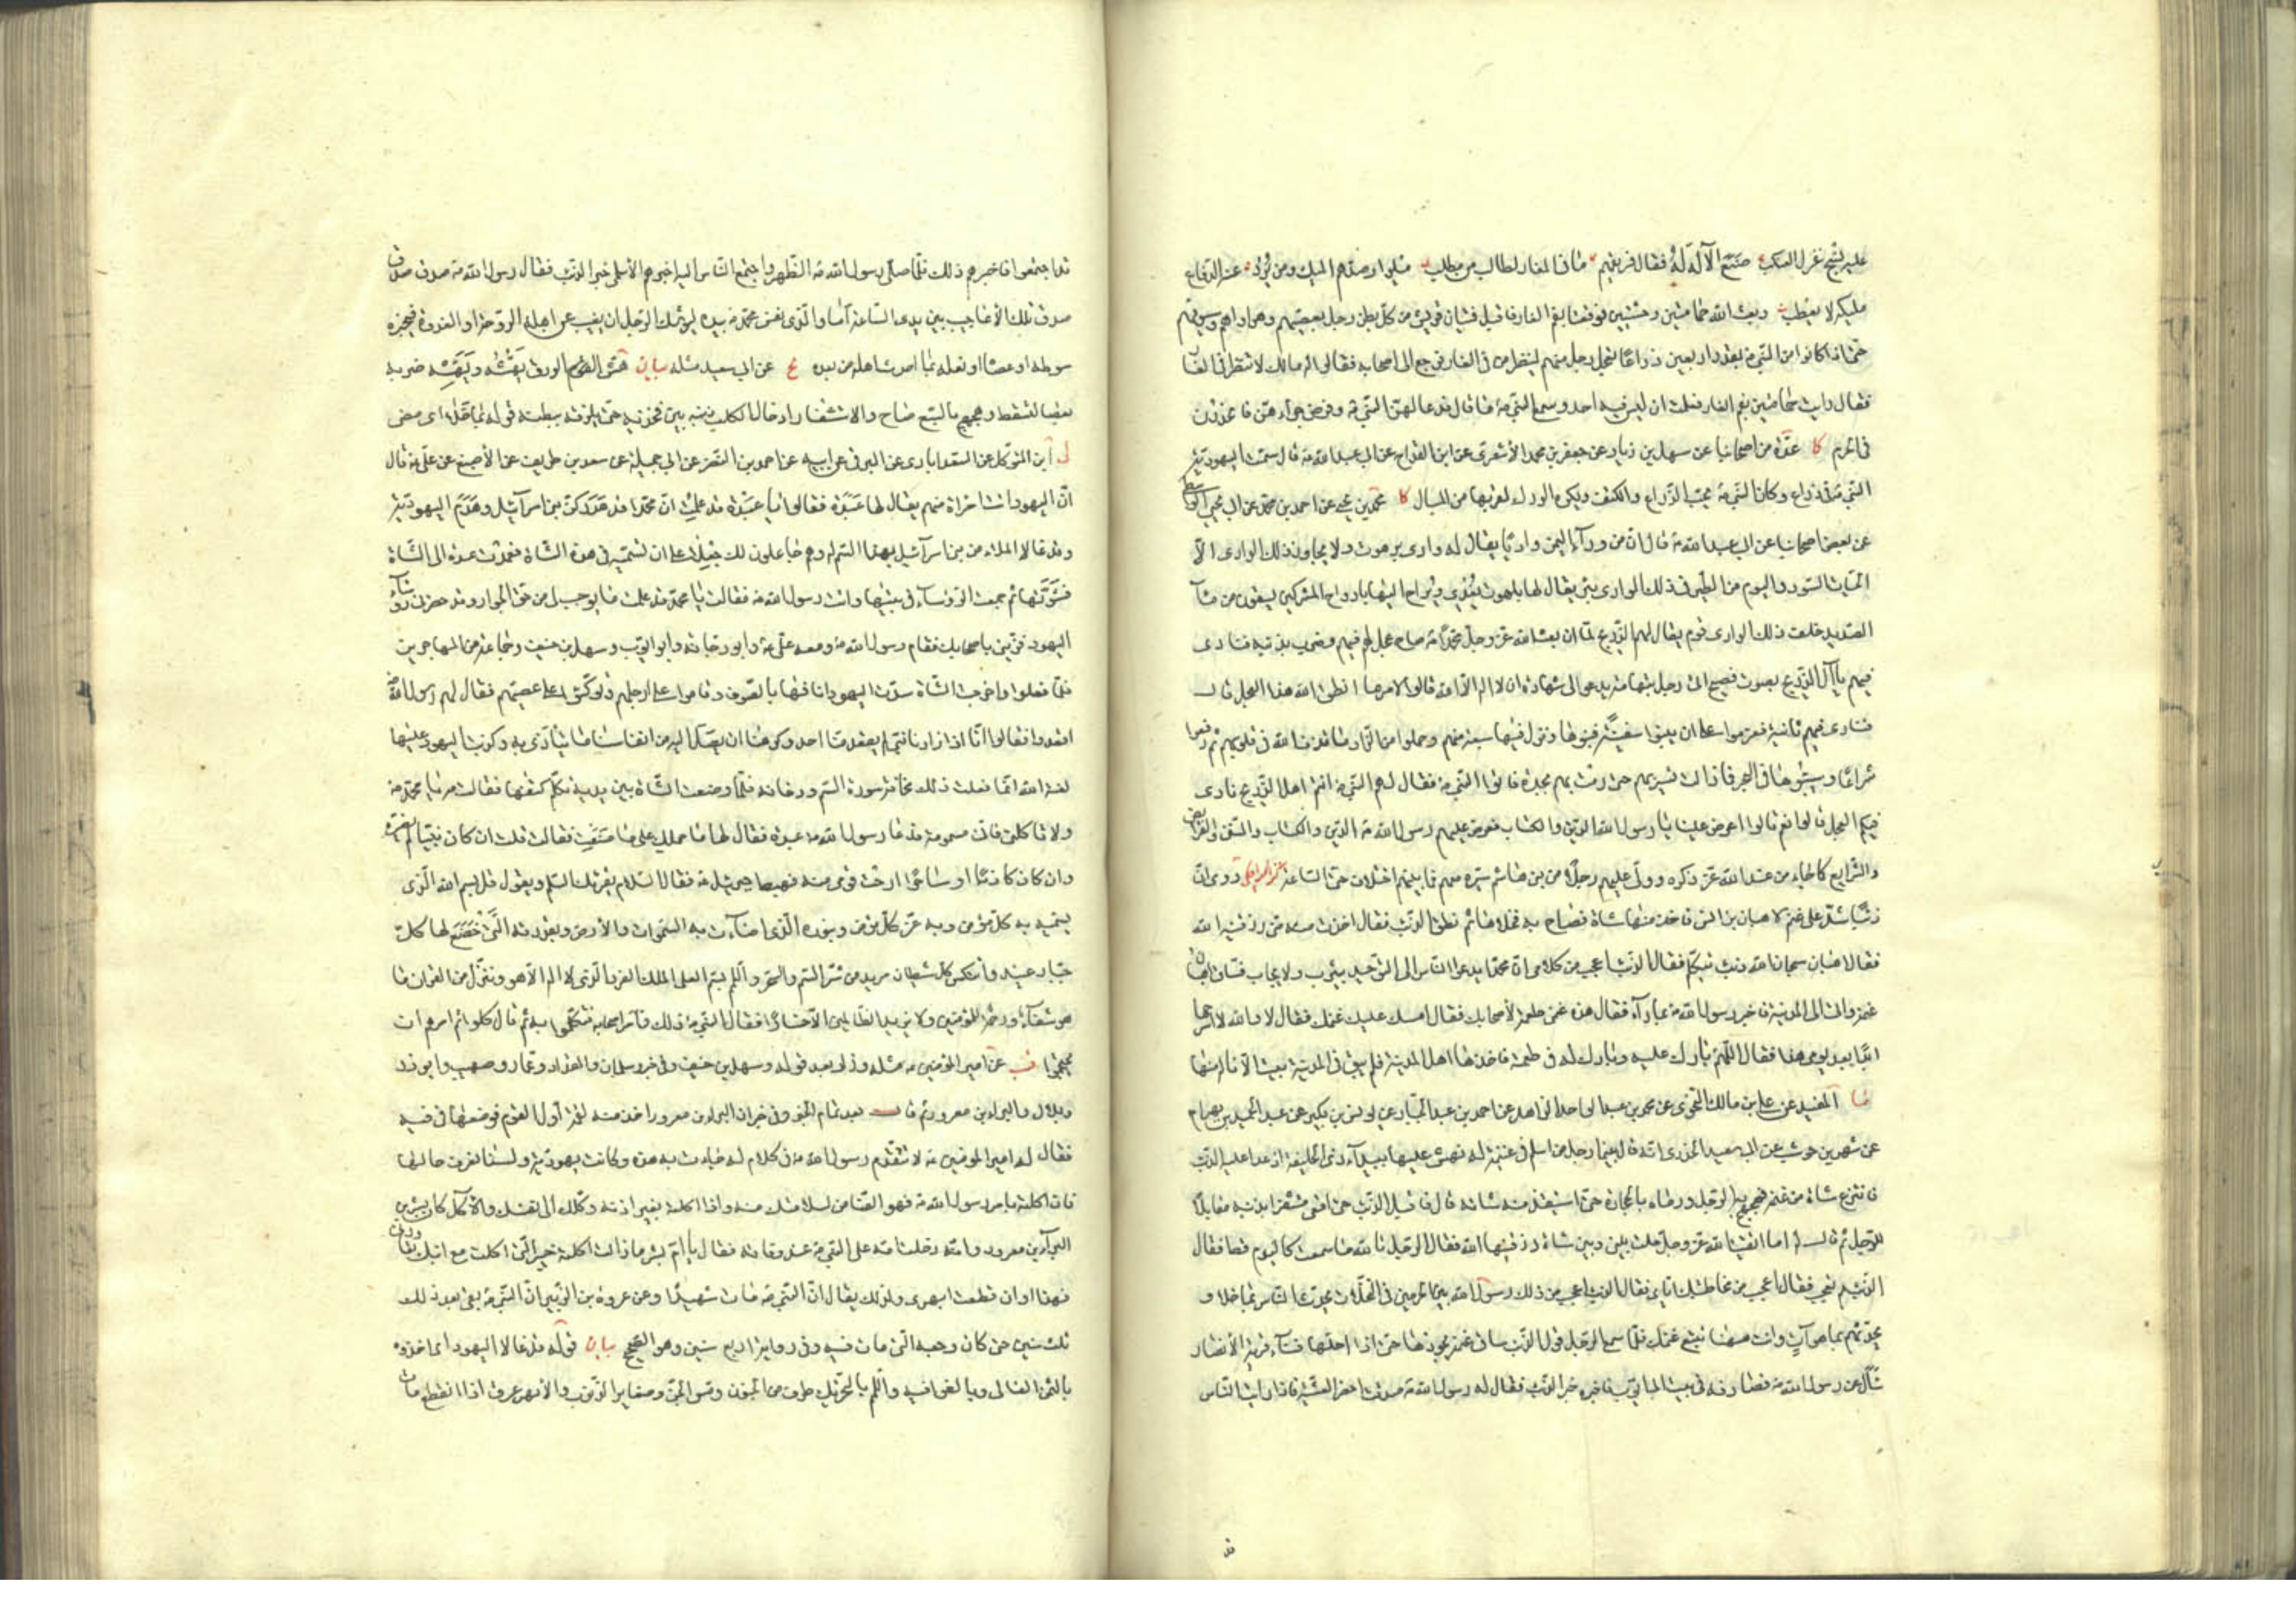 عليه بنسج غزل العنكبوت صنع الآله له فقال فريقهم ما في المغار لطالب من مطلب ميلوا وصدهم المليك ومن يرد عنه الدفاع
مليكه لا يعطب وبعث الله حمامتين وحشيتين فوقعتا بفم الغار فاقبل فتيان قريش من كل بطن رجل بعصيهم وهراواهم وسيوفهم
حتى اذا كانوا من النبي ص بقدر اربعين ذراعا تعجل رجل منهم لينظر من في الغار فرجع الى اصحابه فقالوا له مالك لا تنظر في الغار
فقال رايت حمامتين بفم الغار فعلت ان ليس فيه احد وسمع النبي ص ما قال فدعا لهن النبي ص وفرض جزاءهن فانحدرن
في الحرم كا عدة من اصحابنا عن سهل بن زياد عن جعفر بن محمد الأشعرى عن ابن القداح عن ابي عبد الله ع قال سمت اليهودية
النبي ص في ذراع وكان النبي ص يحب الذراع والكتف ويكره الورك لقربها من المبال كا محمد بن يحيى عن احمد بن محمد عن ابي يحيى الواسطي
عن بعض اصحابنا عن ابي عبد الله ع قال ان من وراء اليمن واديا يقال له وادى برهوت ولا يجاوز ذلك الوادى الا
الحيات السود والبوم من الطير في ذلك الوادى بئر يقال لها بلهوت يغدى ويراح اليها بارواح المشركين يسقون من ماء
الصديد خلف ذلك الوادى قوم يقال لهم الذريح لما ان بعث الله عز وجل محمدا ص صاح عجل لهم فيهم وضرب بذنبه فنادى
فيهم يا آل الذريح بصوت فصيح اتى رجل بتهامة يدعو الى شهادة ان لا اله الا الله قالوا لامر ما انطق الله هذا العجل قال
فنادى فيهم ثانية فعزموا على ان يبنوا سفينة فبنوها ونزل فيها سبعة منهم وحملوا من الزاد ما قذف الله في قلوبهم ثم رفعوا
شراعا وسيبوها في البحر فما زالت تسير بهم حتى رمت بهم بجدة فاتوا النبي ص فقال لهم النبي ص انتم اهل الذريح نادى
فيكم العجل قالوا نعم قالوا اعرض علينا يا رسول الله الدين والكتاب فعرض عليهم رسول الله ص الدين والكتاب والسنن والفرايض
والشرايع كما جاء من عند الله عز ذكره وولى عليهم رجلا من بني هاشم سيره معهم فما بينهم اختلاف حتى الساعة كنز الكراجكي روى ان
ذئبا شد على غنم لاهبان بن انس فاخذ منها شاة فصاح به فخلاها ثم نطق الذئب فقال اخذت منى رزقا رزقنيه الله
فقال اهبان سبحان الله ذئب يتكلم فقال الذئب اعجب من كلامى ان محمدا يدعو الناس الى التوحيد بيثرب ولا يجاب فساق اهبان
غنمه واتى الى المدينة فاخبر رسول الله ص بما رآه فقال هذه غنمى طعمة لأصحابك فقال امسك عليك غنمك فقال لا والله لا اسرحها
ابدا بعد يومى هذا فقال اللهم بارك عليه وبارك له في طعمته فاخذها اهل المدينة فلم يبق في المدينة بيت الا ناله منها
ما المفيد عن علي بن مالك النحوى عن محمد بن عبد الواحد الزاهد عن احمد بن عبد الجبار عن يونس بن بكير عن عبد الحميد بن بهرام
عن شهر بن حوشب عن ابي سعيد الخدرى انه قال بينما رجل من اسلم في غنيمة له يهش عليها ببيداء ذى الحليفة اذ عدا عليه الذئب
فانتزع شاة من غنمه فهجهج به الرجل ورماه بالحجارة حتى استنقذ منه شاته قال فاقبل الذئب حتى اقعى مستثفرا بذنبه مقابلا
للرجل ثم قال له اما اتقيت الله عز وجل حلت بيني وبين شاة رزقنيها الله فقال الرجل تالله ما سمعت كاليوم قط فقال
الذئب مم تعجب فقال اعجب من مخاطبتك اياى فقال الذئب اعجب من ذلك رسول الله بين الحرتين في النخلات يحدث الناس بما خلا و
يحدثهم بما هو آت وانت ههنا تتبع غنمك فلما سمع الرجل قول الذئب ساق غنمه يحوزها حتى اذا احلها فناء قرية الأنصار
سأل عن رسول الله ص فصادفه في بيت ابي ايوب فاخبره خبر الذئب فقال له رسول الله ص صدقت احضر العشية فاذا رايت الناس
قد اجتمعوا فاخبرهم ذلك فلما صلى رسول الله ص الظهر واجتمع الناس اليه اخبرهم الأسلمى خبر الذئب فقال رسول الله ص صدق صدق
صدق تلك الأعاجيب بين يدى الساعة اما والذى نفس محمد ص بيده ليوشك الرجل ان يغيب عن اهله الروحة او الغدوة فيخبره
سوطه او عصاه او نعله بما احدث اهله من بعده يج عن ابي سعيد مثله بيان هش الورق يهشه ويهشه ضربه
بعصا لتسقط وهجهج بالسبع صاح والاستثفار ادخال الكلب ذنبه بين فخذيه حتى يلزقه ببطنه قوله بما خلا اى مضى
لى ابن المتوكل عن السعدابادى عن البرقى عن ابيه عن احمد بن النضر عن ابي جميلة عن سعد بن طريف عن الأصبغ عن علي ع قال
ان اليهود اتت امراة منهم يقال لها عبدة فقالوا يا عبدة قد علمت ان محمدا قد هد ركن بني اسرآئيل وهدم اليهودية
وقد غالا الملاء من بني اسرآئيل بهذا السم له وهم جاعلون لك جعلا على ان تسميه في هذه الشاة فعمدت عبدة الى الشاة
فشوتها ثم جمعت الرؤساء في بيتها واتت رسول الله ص فقالت يا محمد قد علمت ما يوجب لى من حق الجوار وقد حضرنى رؤساء
اليهود فزينى باصحابك فقام رسول الله ص ومعه علي ع وابو دجانة وابو ايوب وسهل بن حنيف وجماعة من المهاجرين
فلما دخلوا واخرجت الشاة سدت اليهود انافها بالصوف وقاموا على ارجلهم وتوكؤا على عصيهم فقال لهم رسول الله ص
اقعدوا فقالوا انا اذا زارنا نبي لم يقعد منا احد وكرهنا ان يصل اليه من انفاسنا ما يتأذى به وكذبت اليهود عليها
لعنة الله انما فعلت ذلك مخافة سورة السم ودخانه فلما وضعت الشاة بين يديه تكلم كتفها فقالت مه يا محمد ص
ولا تاكلنى فانى مسمومة فدعا رسول الله ص عبدة فقال لها ما حملك على ما صنعت فقالت قلت ان كان نبيا لم يضره
وان كان كاذبا او ساحرا ارحت قومى منه فهبط جبرئيل ع فقال السلام يقرئك السلام ويقول قل بسم الله الذى
يسميه به كل مؤمن وبه عز كل مؤمن وبنوره الذى اضاءت به السموات والأرض وبقدرته التى خضع لها كل
جبار عنيد وانتكس كل شيطان مريد من شر السم والسحر واللمم بسم العلى الملك الفرد الذى لا اله الا هو وننزل من القران ما
هو شفاء ورحمة للمؤمنين ولا يزيد الظالمين الا خسارا فقال النبي ص ذلك وامر اصحابه فتكلموا به ثم قال كلوا ثم امرهم ان
يحتجموا قب عن امير المؤمنين ع مثله وزاد بعد قوله وسهل بن حنيف وفي خبر سلمان والمقداد وعمار وصهيب وابو ذر
وبلال والبراء بن معرور ثم قال بعد تمام الخبر وفي خبر ان البراء بن معرور اخذ منه لقمة اول القوم فوضعها في فيه
فقال له امير المؤمنين ع لا تتقدم رسول الله ص في كلام له جاءت به هذه وكانت يهودية ولسنا نعرف حالها
فان اكلته بامر رسول الله ص فهو الضامن لسلامتك منه واذا اكلته بغير اذنه وكلك الى نفسك والاكل كان بشر بن
البراء بن معرور وامه دخلت امه على النبي ص عند وفاته فقال يا ام بشر ما زالت اكلة خيبر التى اكلت مع ابنك تعاودنى
فهذا اوان قطعت ابهرى ولذلك يقال ان النبي ص مات شهيدا وعن عروة بن الزبير ان النبي ص بقى بعد ذلك
ثلث سنين حتى كان وجعه الذى مات فيه وفي رواية اربع سنين وهو الصحيح بيان قوله قد غالا اليهود اى اخذوه
بالثمن الغالى وبالغوا فيه واللمم بالتحريك طرف من الجنون ومس الجن وصغاير الذنوب والأبهر عرق اذا انقطع مات